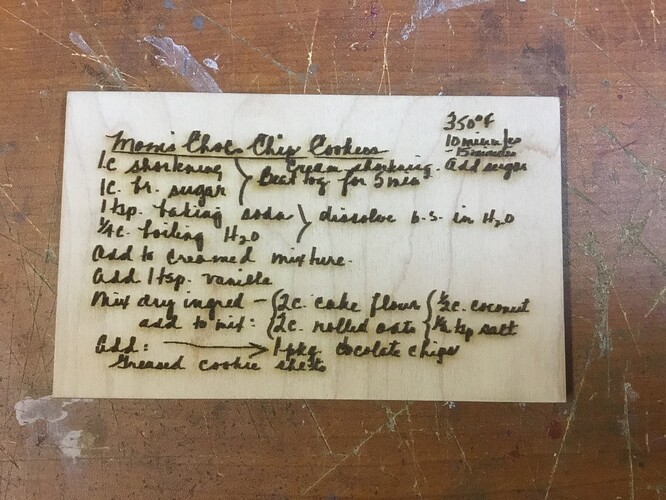 350°F
Mom's Choc Chip Cookies 10 minutes
15 minutes
1c shortening } Cream shortening. Add sugar
1c. br. sugar Beat tog for 5 min
1 tsp. baking soda } dissolve b.s. in H2O
¼c. boiling H2O
Add to creamed mixture.
Add 1 tsp. vanilla
Mix dry ingred — { 2c. cake flour { ½c. coconut
add to mix: { 2c. rolled oats { tsp salt
Add: → 1 pkg. cocolate chips
Greased cookie sheets